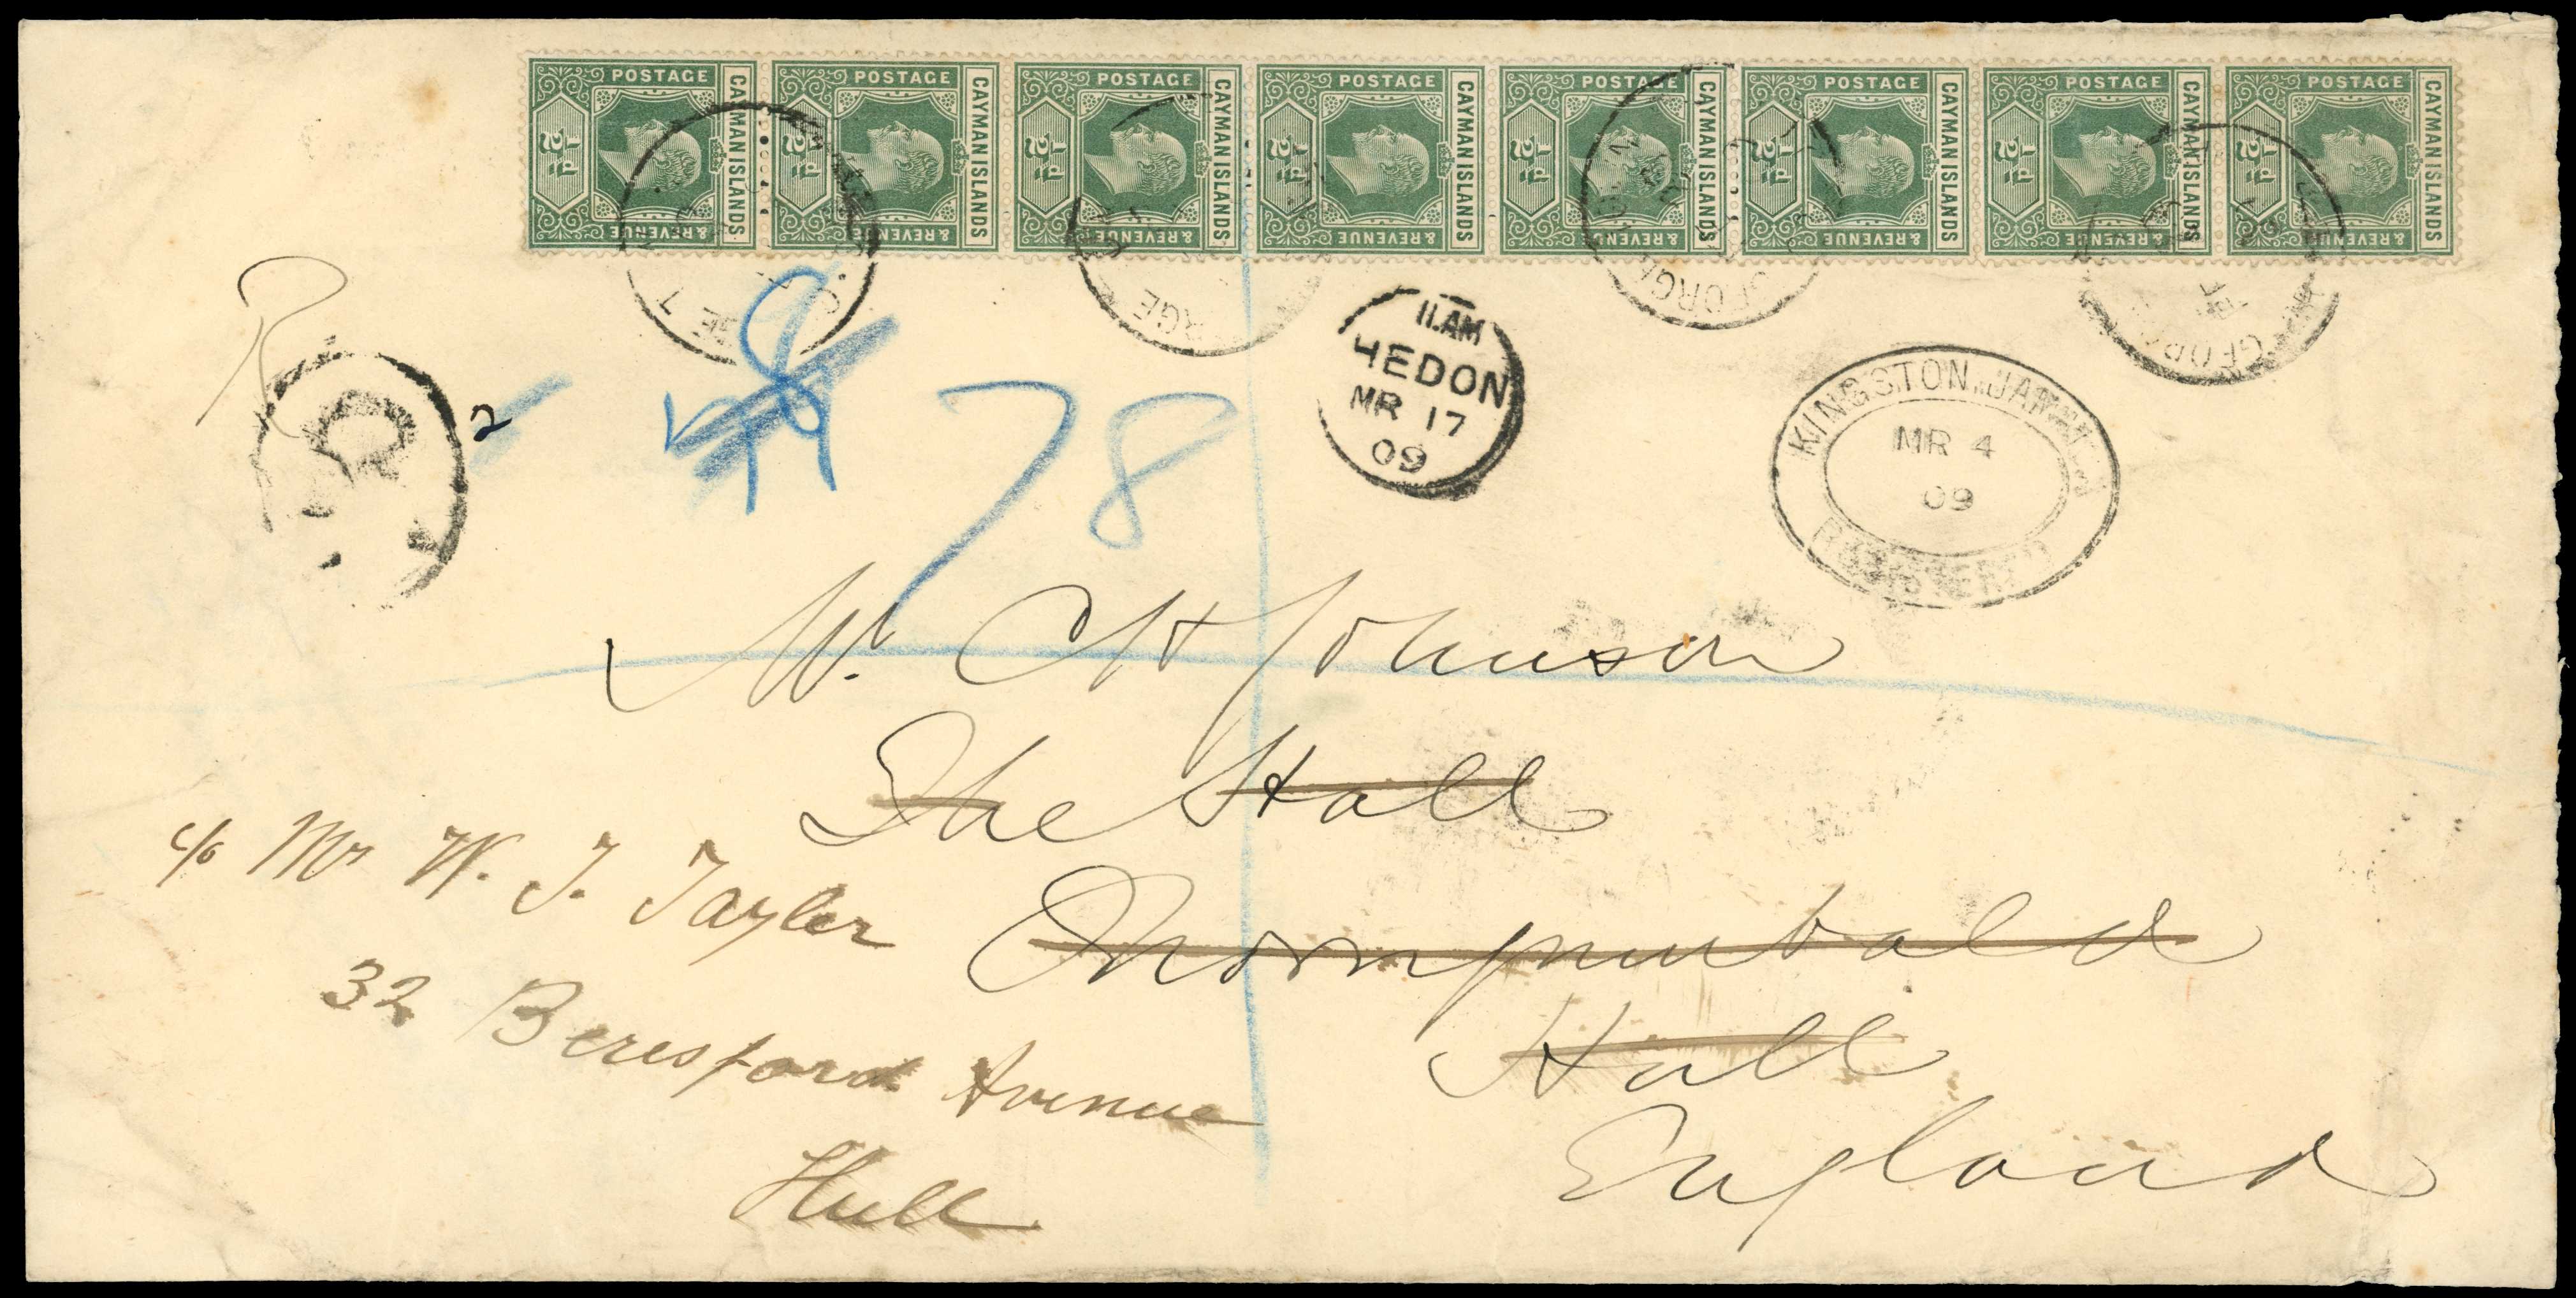 POSTAGE CAYMAN ISLANDS & REVENUE ½D
POSTAGE CAYMAN ISLANDS & REVENUE ½D
POSTAGE CAYMAN ISLANDS & REVENUE ½D
POSTAGE CAYMAN ISLANDS & REVENUE ½D
POSTAGE CAYMAN ISLANDS & REVENUE ½D
POSTAGE CAYMAN ISLANDS & REVENUE ½D
POSTAGE CAYMAN ISLANDS & REVENUE ½D
POSTAGE CAYMAN ISLANDS & REVENUE ½D
R
R
2
78
11.AM
HEDON
MR 17
09
KINGSTON. JAMAICA
MR 4
09
REGISTERED
Mr. C H Johnson
The Hall
Thorngumbald
Hull
England
c/o Mr W. J. Tayler
32 Beresford Avenue
Hull